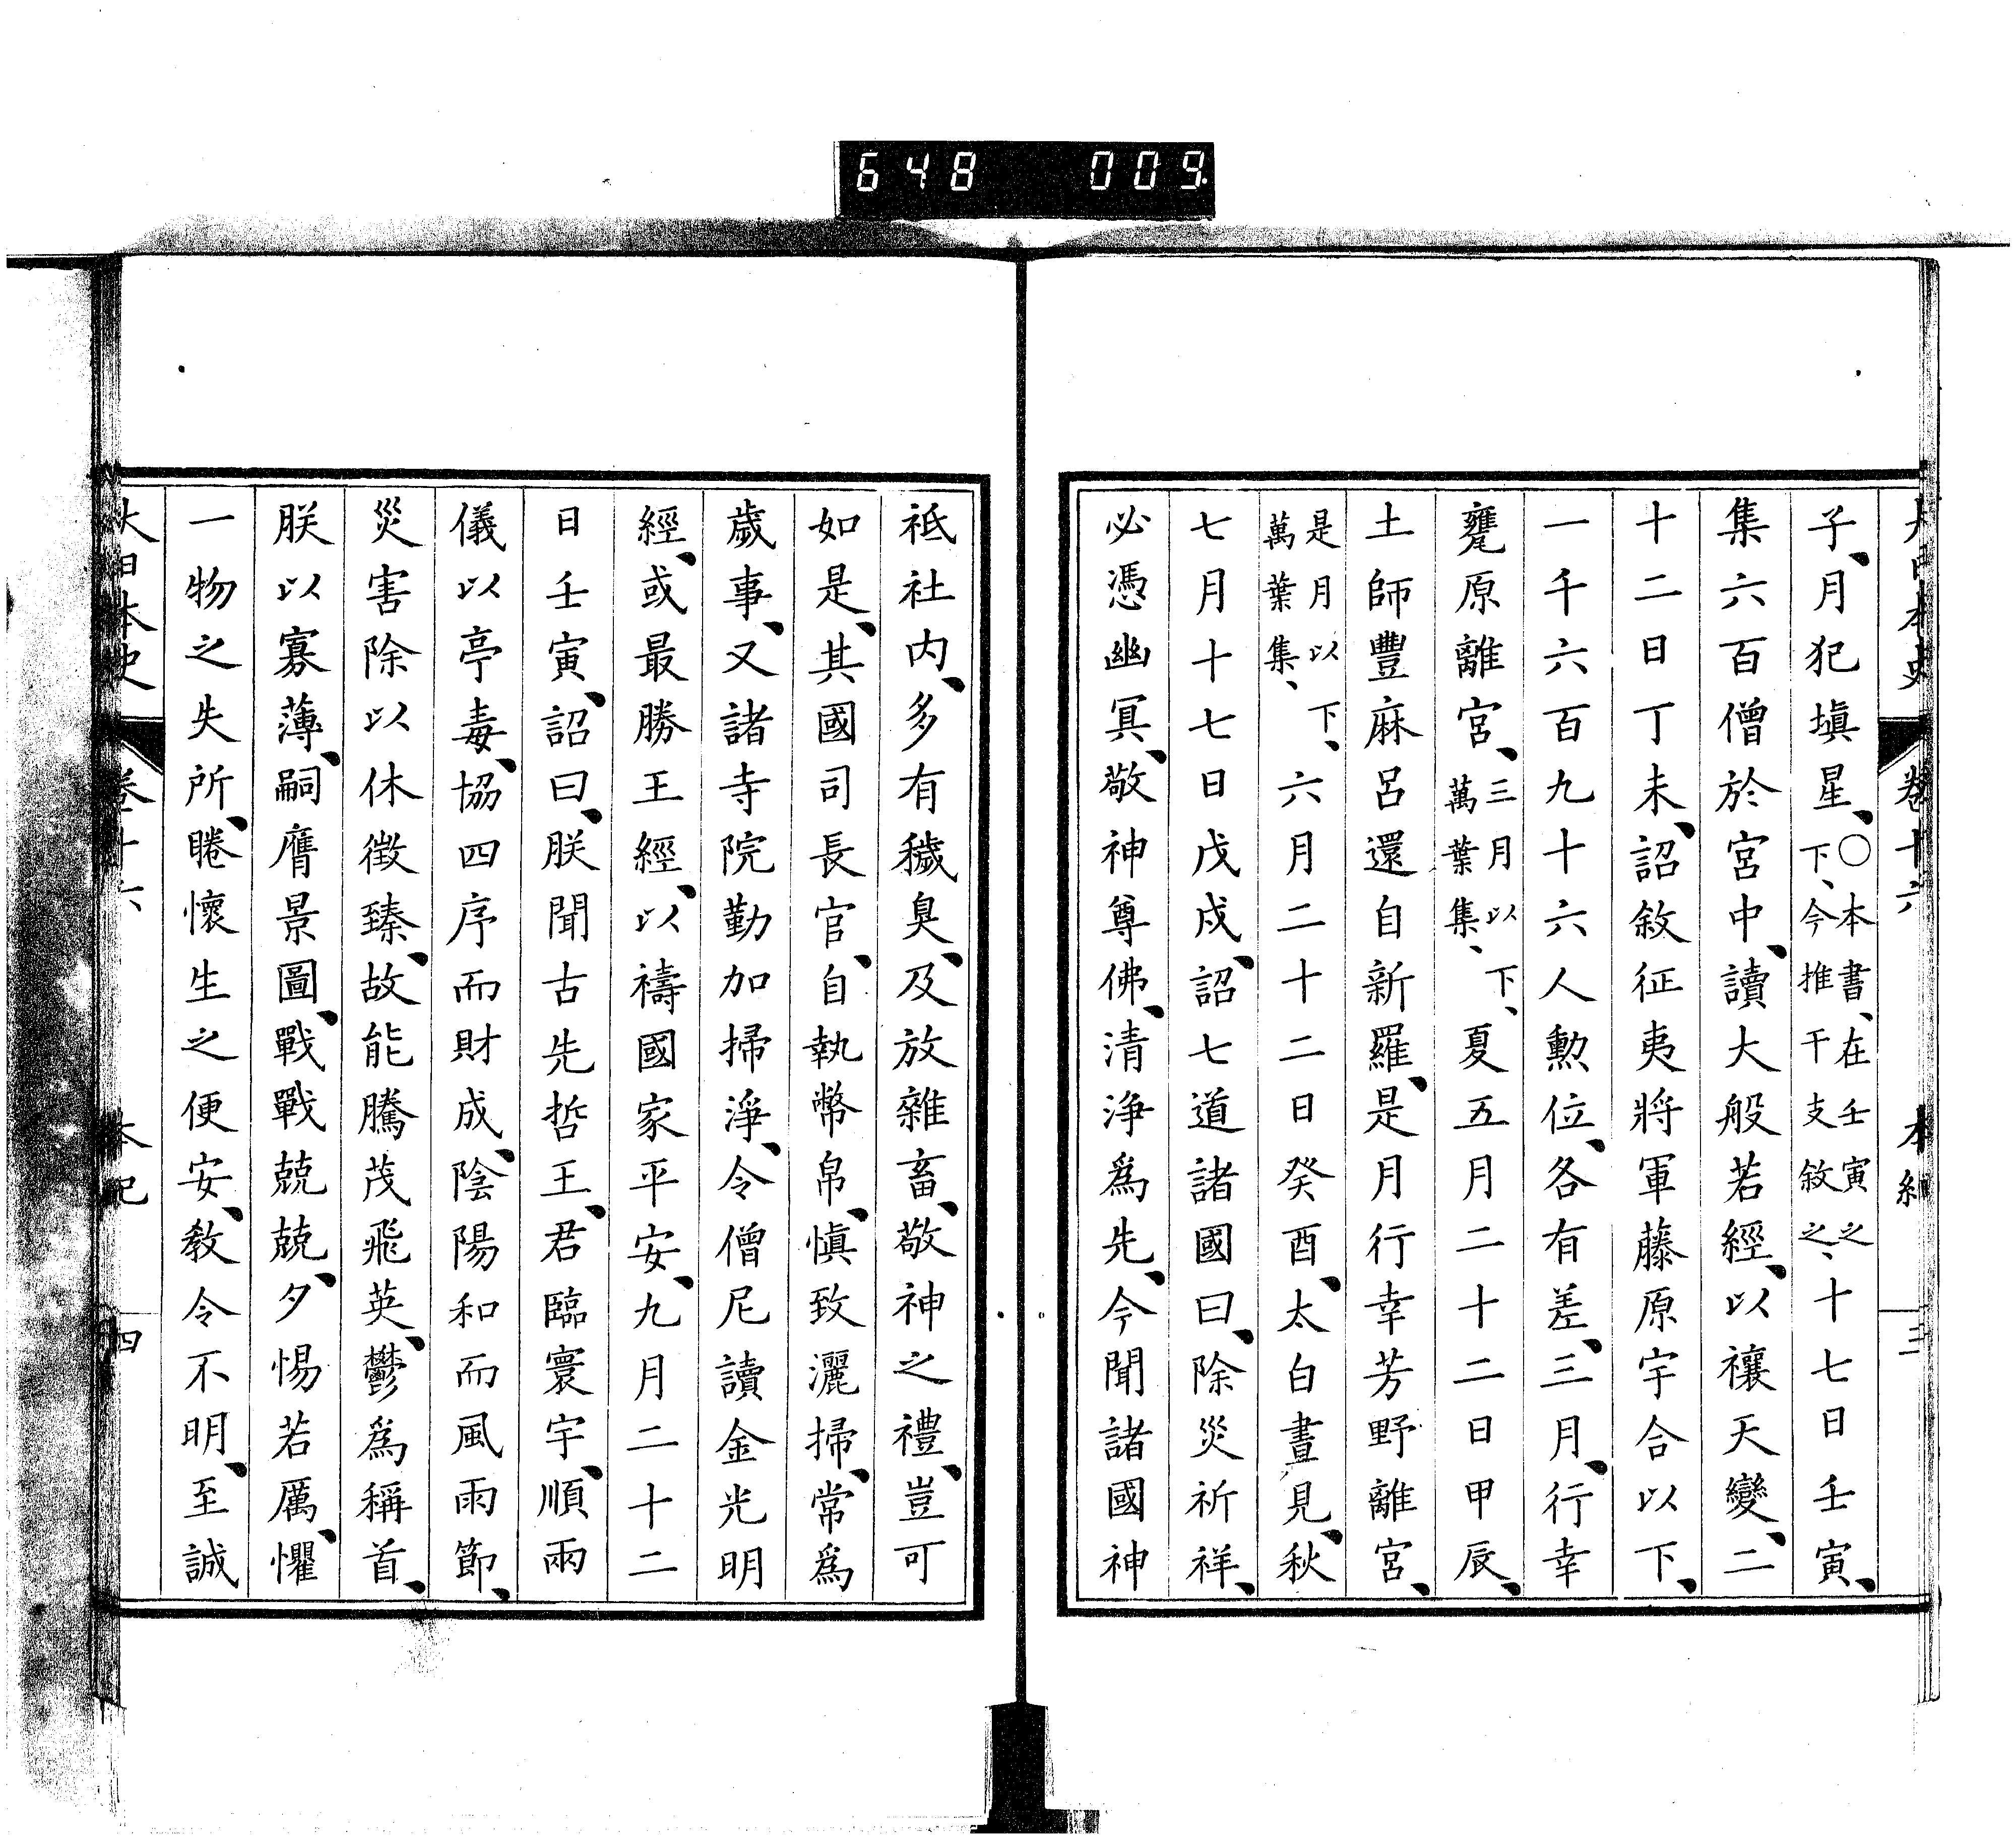 648 009
大日本史 卷十六 本紀 三
子、月犯塡星、〇本書、在壬寅之下、今推干支敘之、十七日壬寅、
集六百僧於宮中、讀大般若經、以禳天變、二
十二日丁未、詔敘征夷將軍藤原宇合以下、
一千六百九十六人勲位、各有差、三月、行幸
甕原離宮、三月以下、萬葉集、夏五月二十二日甲辰、
土師豐麻呂還自新羅、是月行幸芳野離宮、
是月以下、萬葉集、六月二十二日癸酉、太白晝見、秋
七月十七日戊戌、詔七道諸國曰、除災祈祥、
必憑幽冥、敬神尊佛、清淨爲先、今聞諸國神
祗社内、多有穢臭、及放雜畜、敬神之禮、豈可
如是、其國司長官、自執幣帛、愼致灑掃、常爲
歲事、又諸寺院勤加掃淨、令僧尼讀金光明
經、或最勝王經、以禱國家平安、九月二十二
日壬寅、詔曰、朕聞古先哲王、君臨寰宇、順兩
儀以亭毒、協四序而財成、陰陽和而風雨節、
災害除以休徵臻、故能騰茂飛英、鬱爲稱首、
朕以寡薄、嗣膺景圖、戰戰兢兢、夕惕若厲、懼
一物之失所、睠懷生之便安、敎令不明、至誠
大日本史 卷十六 本紀 四